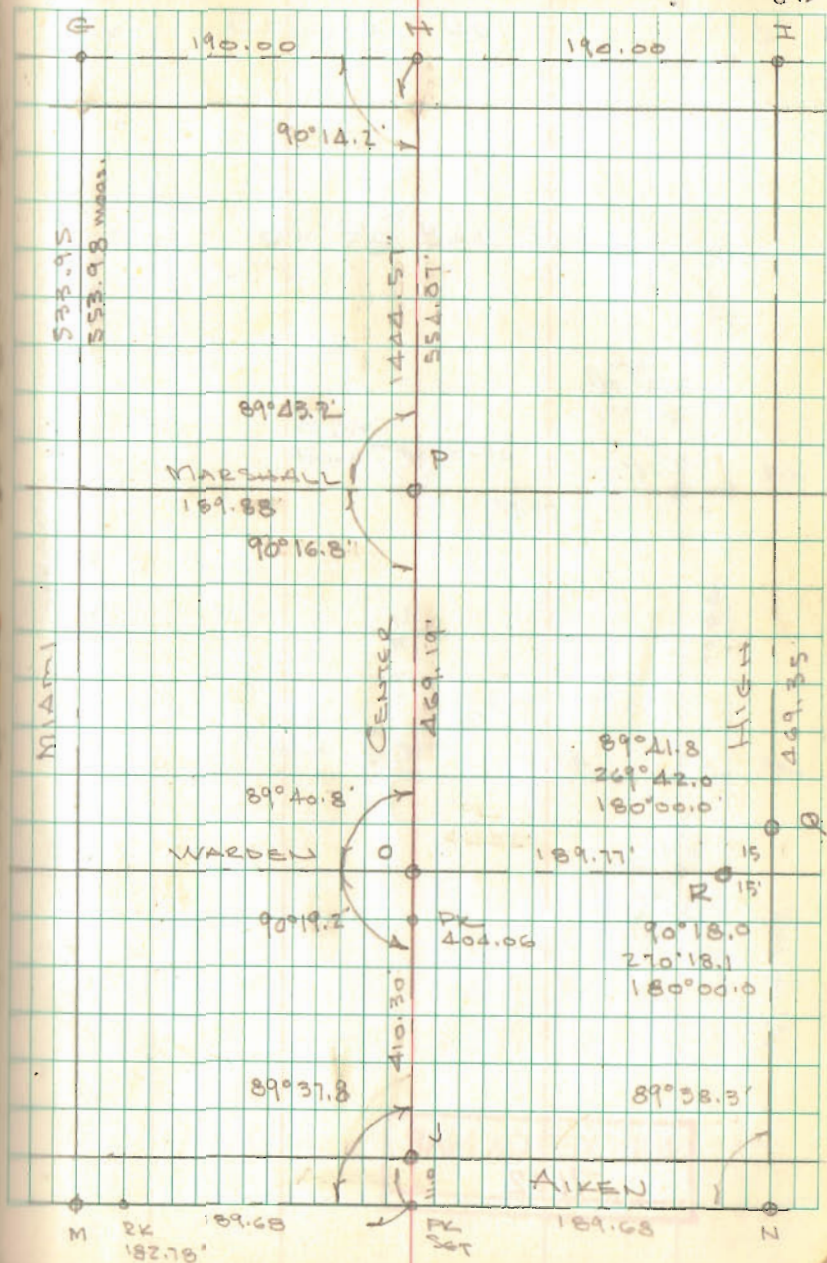 G
H
190.00
190.00
90°14.2'
533.95
553.98 meas.
1444.57'
554.87'
89°43.2'
P
MARSHALL
189.88
90°16.8'
MIAMI
CENTER
469.19'
HIGH
469.35
89°41.8
269°42.0
180°00.0'
89°40.8'
WARDEN
O
189.77'
R
15
15'
90°19.2'
PK
404.06
90°18.0
270°18.1
180°00.0
410.30'
89°37.8
89°38.3'
11.0
AIKEN
M
189.68
PK
SET
189.68
N
182.78'